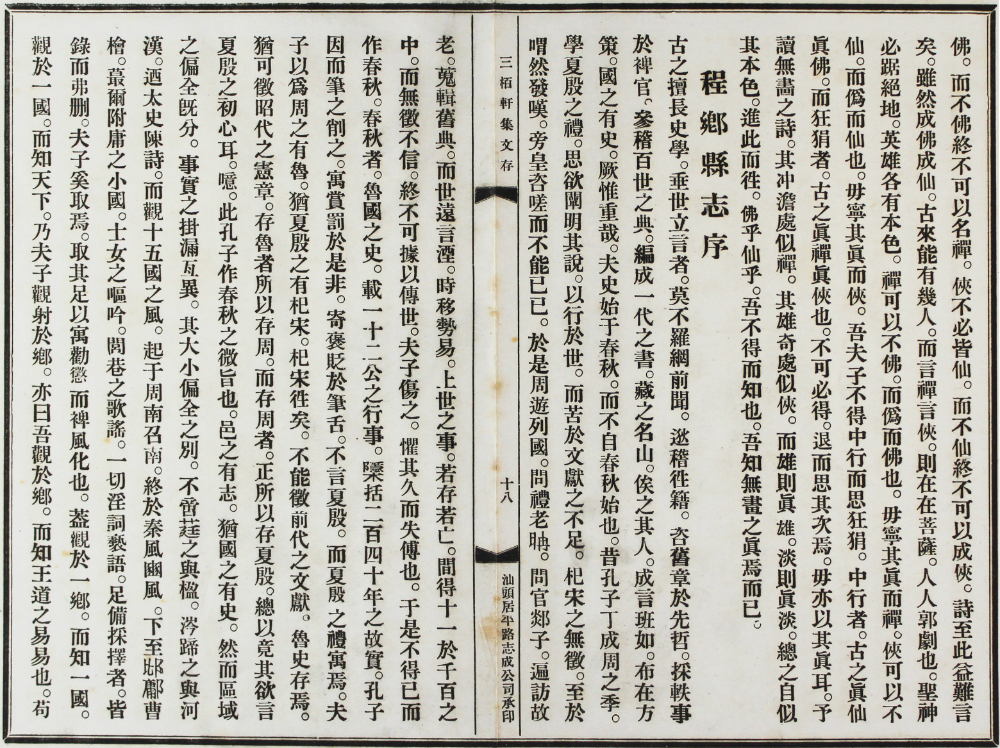 佛。而不佛終不可以名禪。俠不必皆仙。而不仙終不可以成俠。詩至此益難言
矣。雖然成佛成仙。古來能有幾人。而言禪言俠。則在在菩薩。人人郭劇也。聖神
必踞絕地。英雄各有本色。禪可以不佛。而僞而佛也。毋寧其眞而禪。俠可以不
仙。而僞而仙也。毋寧其眞而俠。吾夫子不得中行而思狂狷。中行者。古之眞仙
眞佛。而狂狷者。古之眞禪眞俠也。不可必得。退而思其次焉。毋亦以其眞耳。予
讀無畵之詩。其冲澹處似禪。其雄奇處似俠。而雄則眞雄。淡則眞淡。總之自似
其本色。進此而徃。佛乎仙乎。吾不得而知也。吾知無畫之眞焉而已。
程鄕縣志序
古之擅長史學。垂世立言者。莫不羅網前聞。逖稽徃籍。咨舊章於先哲。採軼事
於稗官。參稽百世之典。編成一代之書。藏之名山。俟之其人。成言班如。布在方
策。國之有史。厥惟重哉。夫史始于春秋。而不自春秋始也。昔孔子丁成周之季。
學夏殷之禮。思欲闡明其說。以行於世。而苦於文獻之不足。杞宋之無徵。至於
喟然發嘆。旁皇咨嗟而不能已已。於是周遊列國。問禮老聃。問官郯子。遍訪故
三栢軒集文存
十八
汕頭居平路志成公司承印
老。蒐輯舊典。而世遠言湮。時移勢易。上世之事。若存若亡。間得十一於千百之
中。而無徵不信。終不可據以傳世。夫子傷之。懼其久而失傳也。于是不得已而
作春秋。春秋者。魯國之史。載一十二公之行事。檃括二百四十年之故實。孔子
因而筆之削之。寓賞罰於是非。寄褒貶於筆舌。不言夏殷。而夏殷之禮寓焉。夫
子以爲周之有魯。猶夏殷之有杞宋。杞宋徃矣。不能徵前代之文獻。魯史存焉。
猶可徵昭代之憲章。存魯者所以存周。而存周者。正所以存夏殷。總以竟其欲言
夏殷之初心耳。噫。此孔子作春秋之微旨也。邑之有志。猶國之有史。然而區域
之偏全旣分。事實之掛漏亙異。其大小偏全之別。不啻莛之與楹。涔蹄之與河
漢。迺太史陳詩。而觀十五國之風。起于周南召南。終於秦風豳風。下至邶鄘曹
檜。蕞爾附庸之小國。士女之嘔吟。閭巷之歌謠。一切淫詞褻語。足備採擇者。皆
錄而弗刪。夫子奚取焉。取其足以寓勸懲而裨風化也。葢觀於一鄕。而知一國。
觀於一國。而知天下。乃夫子觀射於鄕。亦曰吾觀於鄕。而知王道之易易也。苟